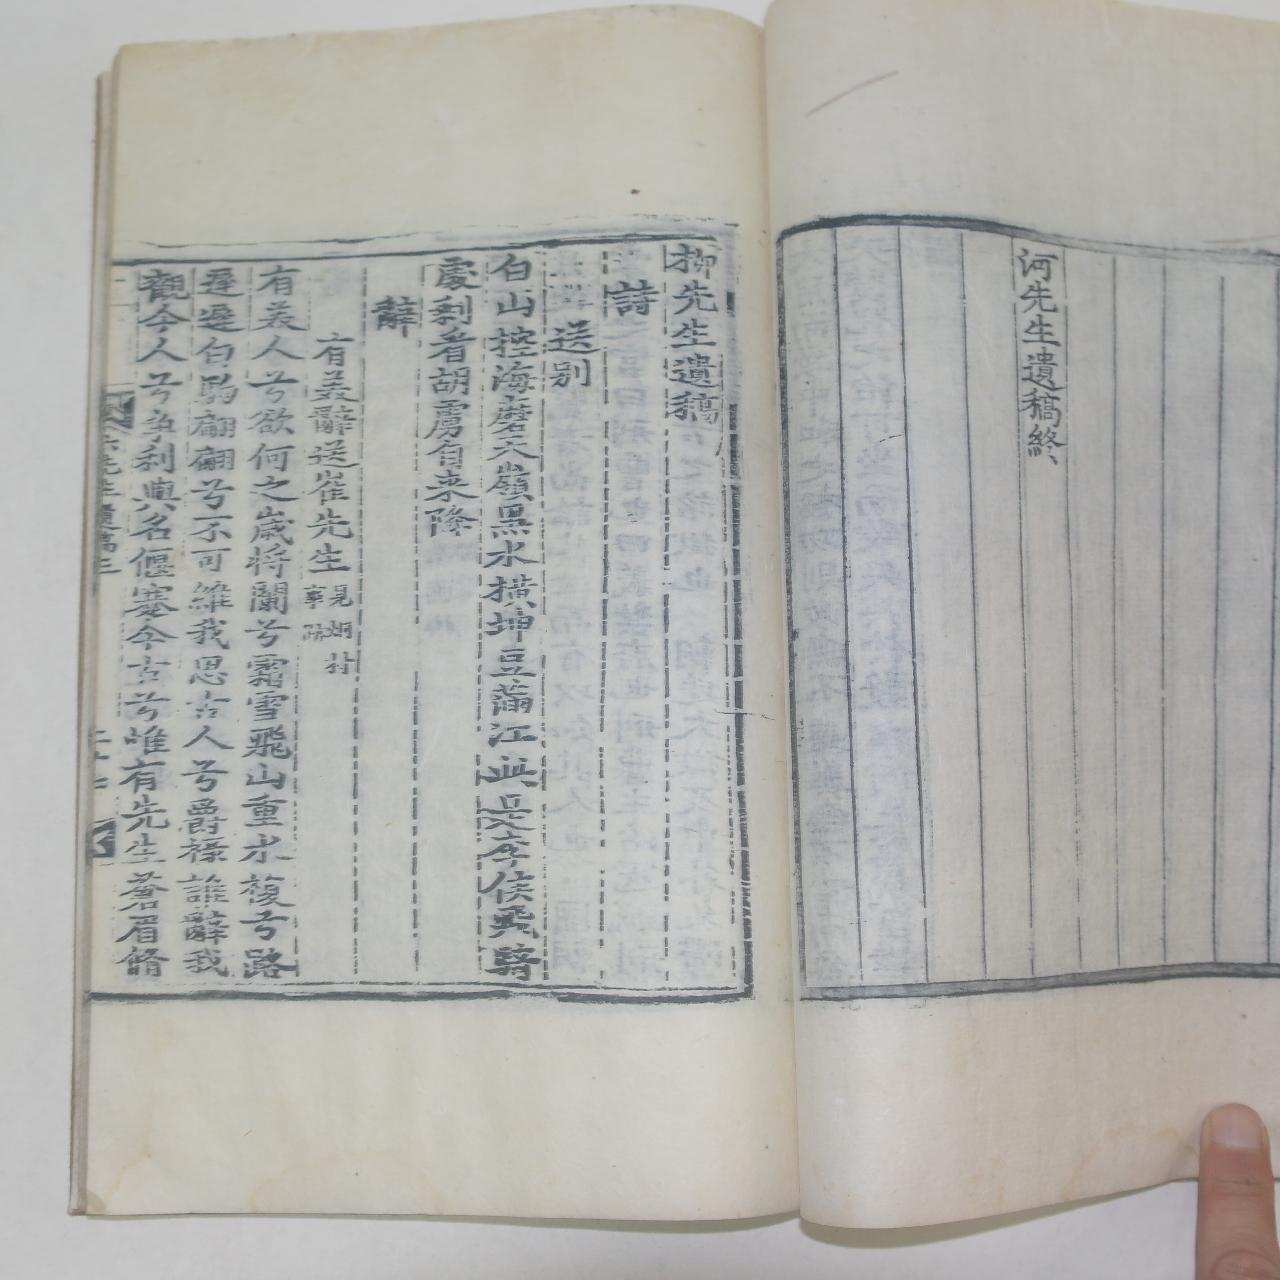 河先生遺稿終
柳先生遺稿
詩
送別
白山控海磨天嶺黑水橫坤豆滿江此是李侯飛騎
處剩看胡虜自來降
辭
有美辭送崔先生
有美人兮欲何之歲將闌兮霜雪飛山重水複兮路
遲遲白駒翩翩兮不可維我思古人兮爵祿誰辭我
觀今人兮爭利與名偃蹇今古兮唯有先生蒼眉脩
先生遺稿三